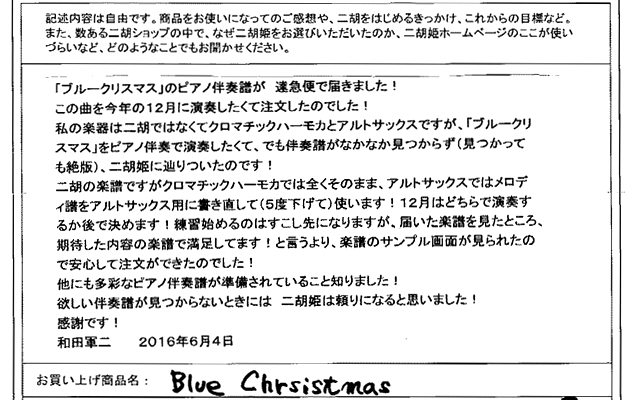 記述内容は自由です。商品をお使いになってのご感想や、二胡をはじめるきっかけ、これからの目標など。
また、数ある二胡ショップの中で、なぜ二胡姫をお選びいただいたのか、二胡姫ホームページのここが使い
づらいなど、どのようなことでもお聞かせください。
「ブルークリスマス」のピアノ伴奏譜が 速急便で届きました！
この曲を今年の12月に演奏したくて注文したのでした！
私の楽器は二胡ではなくてクロマチックハーモカとアルトサックスですが、「ブルークリ
スマス」をピアノ伴奏で演奏したくて、でも伴奏譜がなかなか見つからず（見つかって
も絶版）、二胡姫に辿りついたのです！
二胡の楽譜ですがクロマチックハーモカでは全くそのまま、アルトサックスではメロデ
ィ譜をアルトサックス用に書き直して（5度下げて）使います！12月はどちらで演奏す
るか後で決めます！練習始めるのはすこし先になりますが、届いた楽譜を見たところ、
期待した内容の楽譜で満足してます！と言うより、楽譜のサンプル画面が見られたの
で安心して注文ができたのでした！
他にも多彩なピアノ伴奏譜が準備されていること知りました！
欲しい伴奏譜が見つからないときには 二胡姫は頼りになると思いました！
感謝です！
和田軍二 2016年6月4日
お買い上げ商品名： Blue Chrsistmas